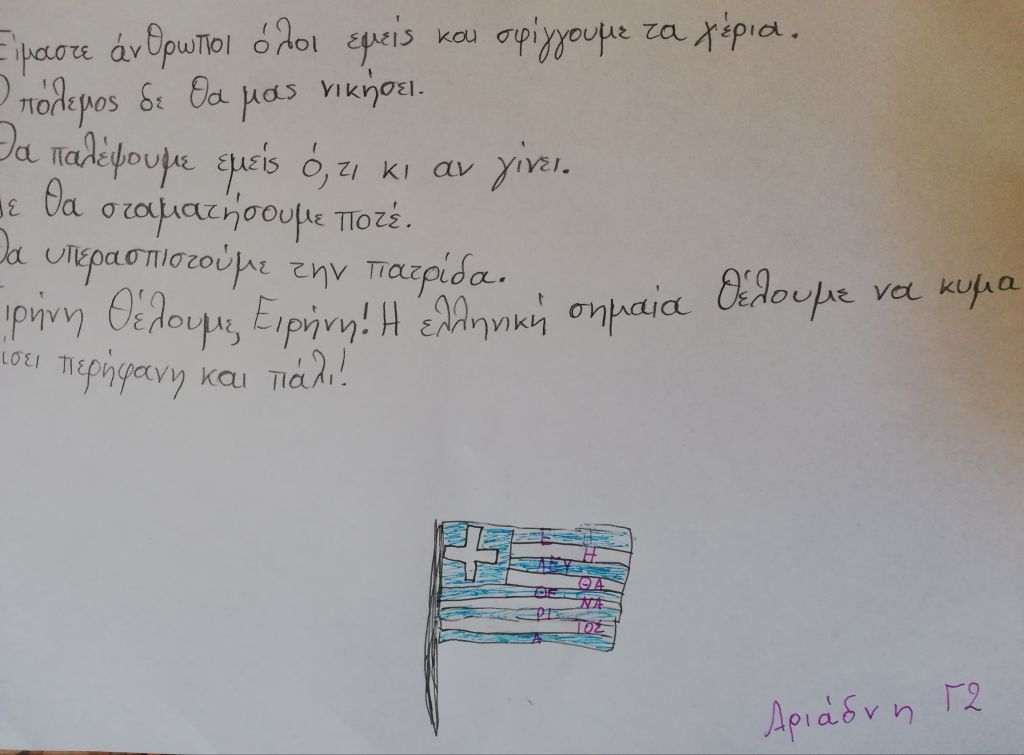 Είμαστε άνθρωποι όλοι εμείς και σφίγγουμε τα χέρια.
Ο πόλεμος δε θα μας νικήσει.
Θα παλέψουμε εμείς ό,τι κι αν γίνει.
Δε θα σταματήσουμε ποτέ.
Θα υπερασπιστούμε την πατρίδα.
Ειρήνη θέλουμε, Ειρήνη! Η ελληνική σημαία θέλουμε να κυμα
τίσει περήφανη και πάλι!
Ε
ΛΕΥ
ΘΕ
ΡΙ
Α
Ή
ΘΑ
ΝΑ
ΤΟΣ
Αριάδνη Γ2